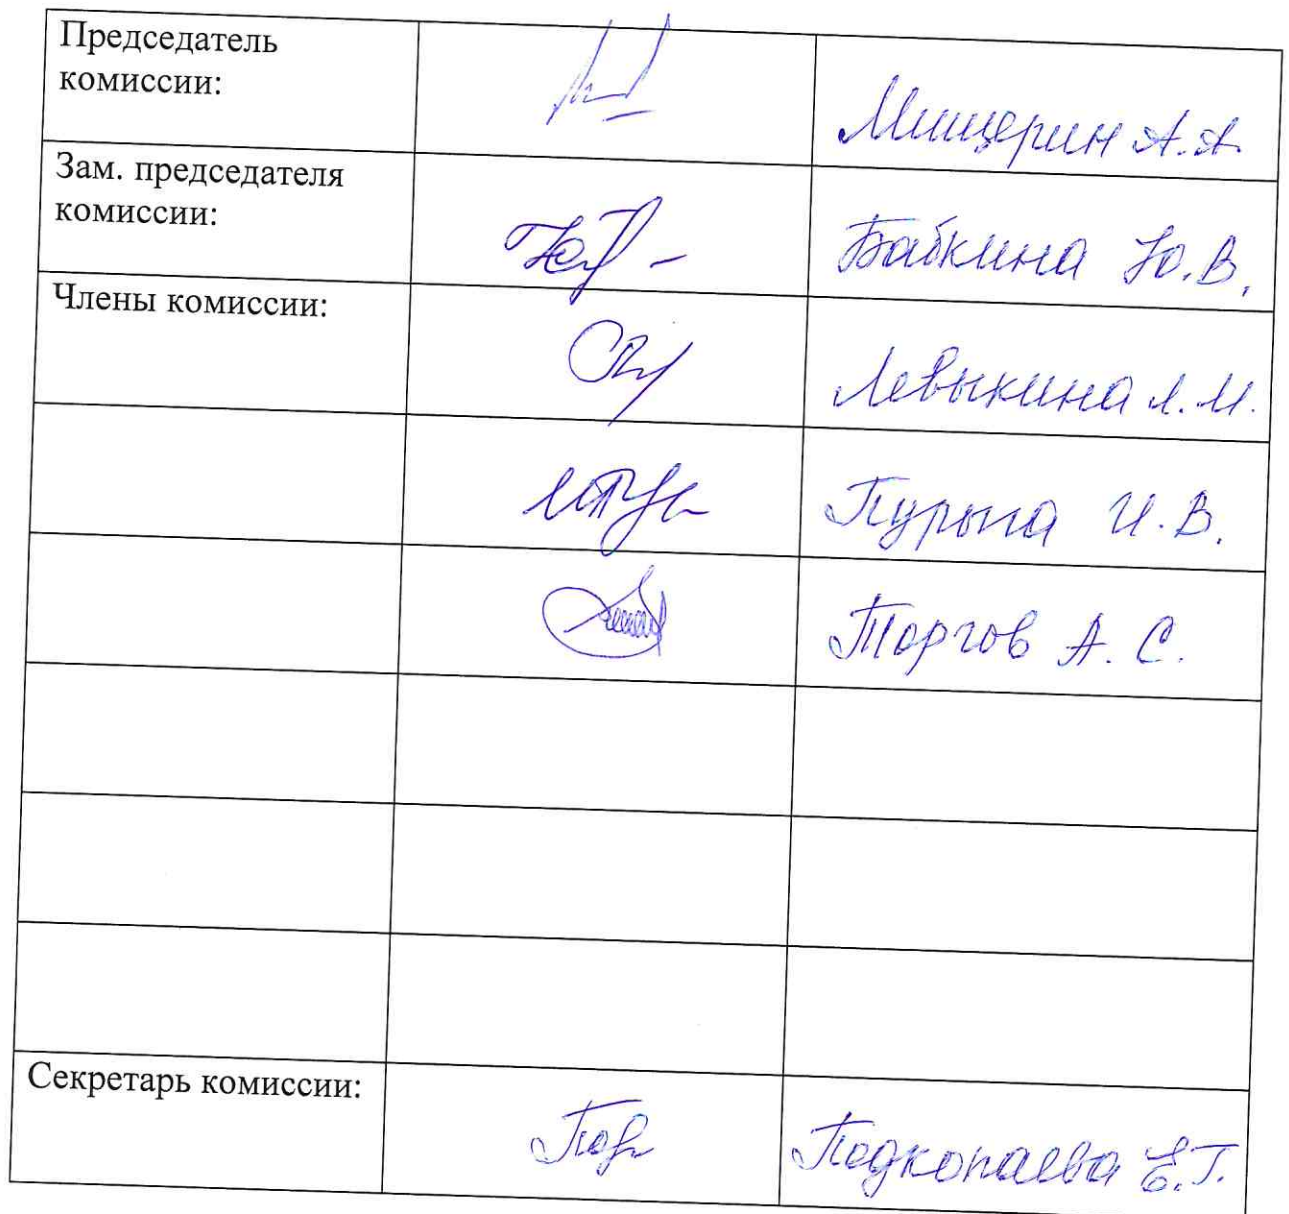 Председатель
комиссии:
Мищерин А.А.
Зам. председателя
комиссии:
Бабкина Ю.В.
Члены комиссии:
Левыкина Л.М.
И.В.
Торгов А.С.
Секретарь комиссии:
Подкопаева Е.Г.